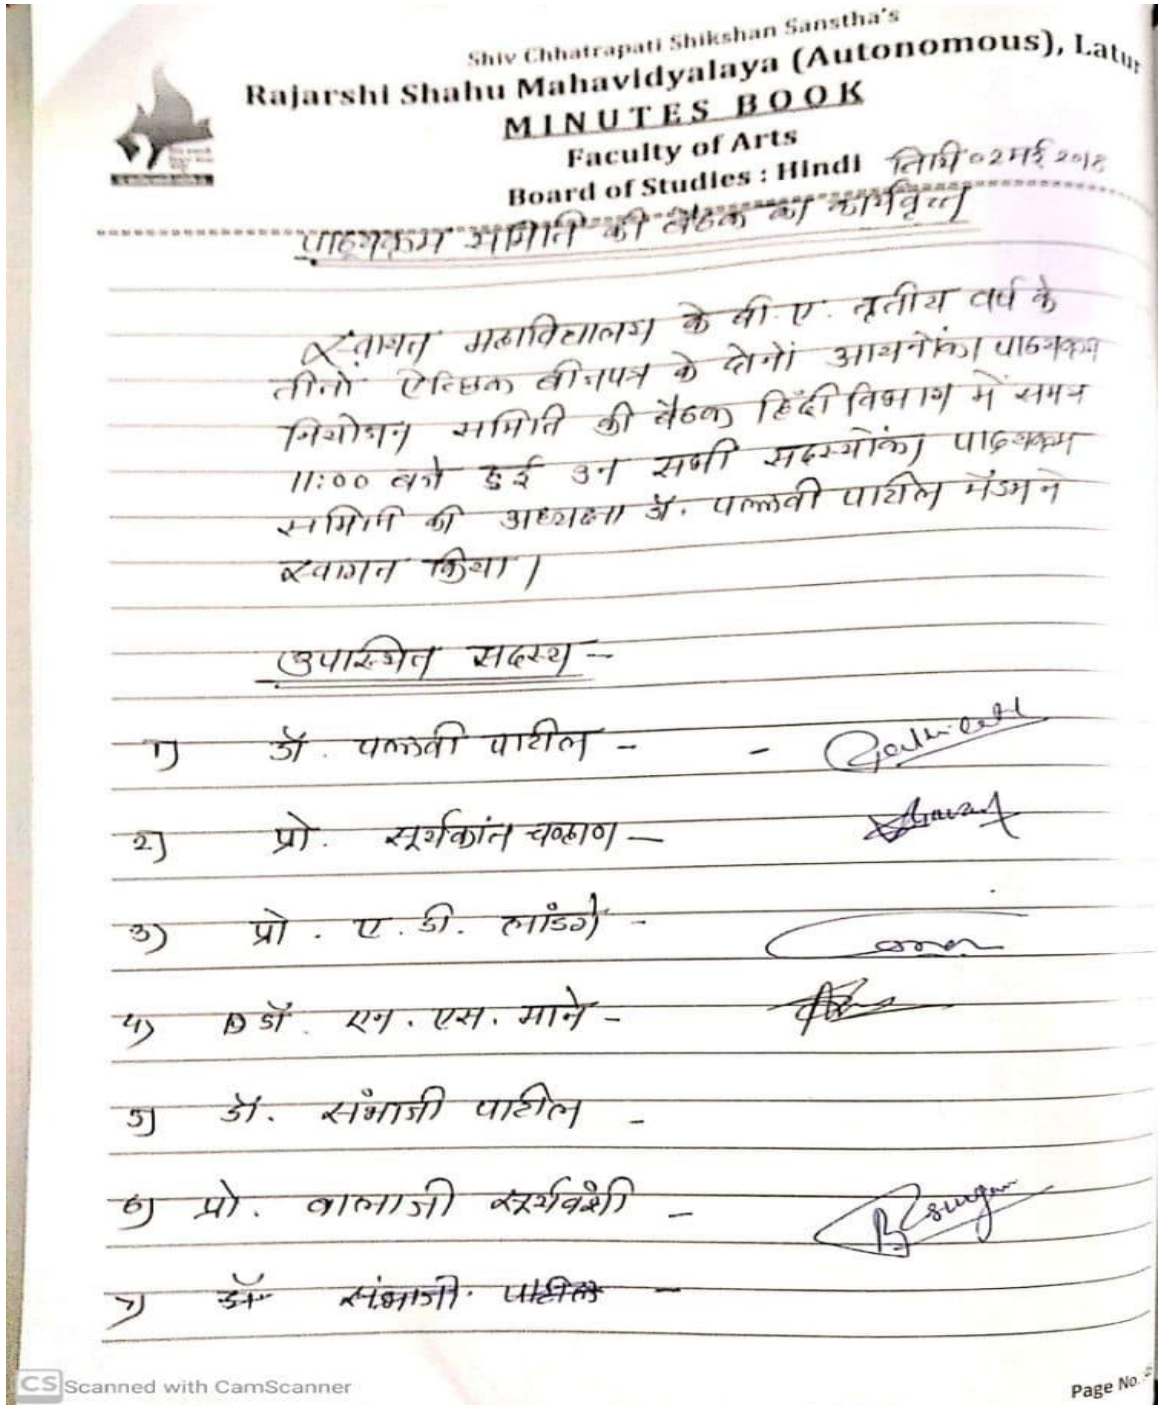 Shiv Chhatrapati Shikshan Sanstha's
Rajarshi Shahu Mahavidyalaya (Autonomous), Latur
MINUTES BOOK
Faculty of Arts
Board of Studies : Hindi तिथि ०2 मई 2018
पाठ्यक्रम समिति की बैठक का कार्यवृत्त
स्वायत्त महाविद्यालय के बी.ए. तृतीय वर्ष के
तीनों ऐच्छिक बीजपत्र के दोनों पाठ्यक्रम
नियोजन समिति की बैठक हिंदी विभाग में समय
11:00 बजे हुई उन सभी सदस्योंका पाठ्यक्रम
समिति की अध्यक्षा डॉ. पल्लवी पाटील मॅडम ने
स्वागत किया।
उपस्थित सदस्य -
1) डॉ. पल्लवी पाटील - -
2) प्रो. सूर्यकांत चव्हाण -
3) प्रो. ए.डी. लांडगे -
4) डॉ. एन.एस. माने -
5) डॉ. संभाजी पाटील -
6) प्रो. बालाजी सूर्यवंशी -
7) डॉ संभाजी. पाटील -
CS Scanned with CamScanner
Page No.